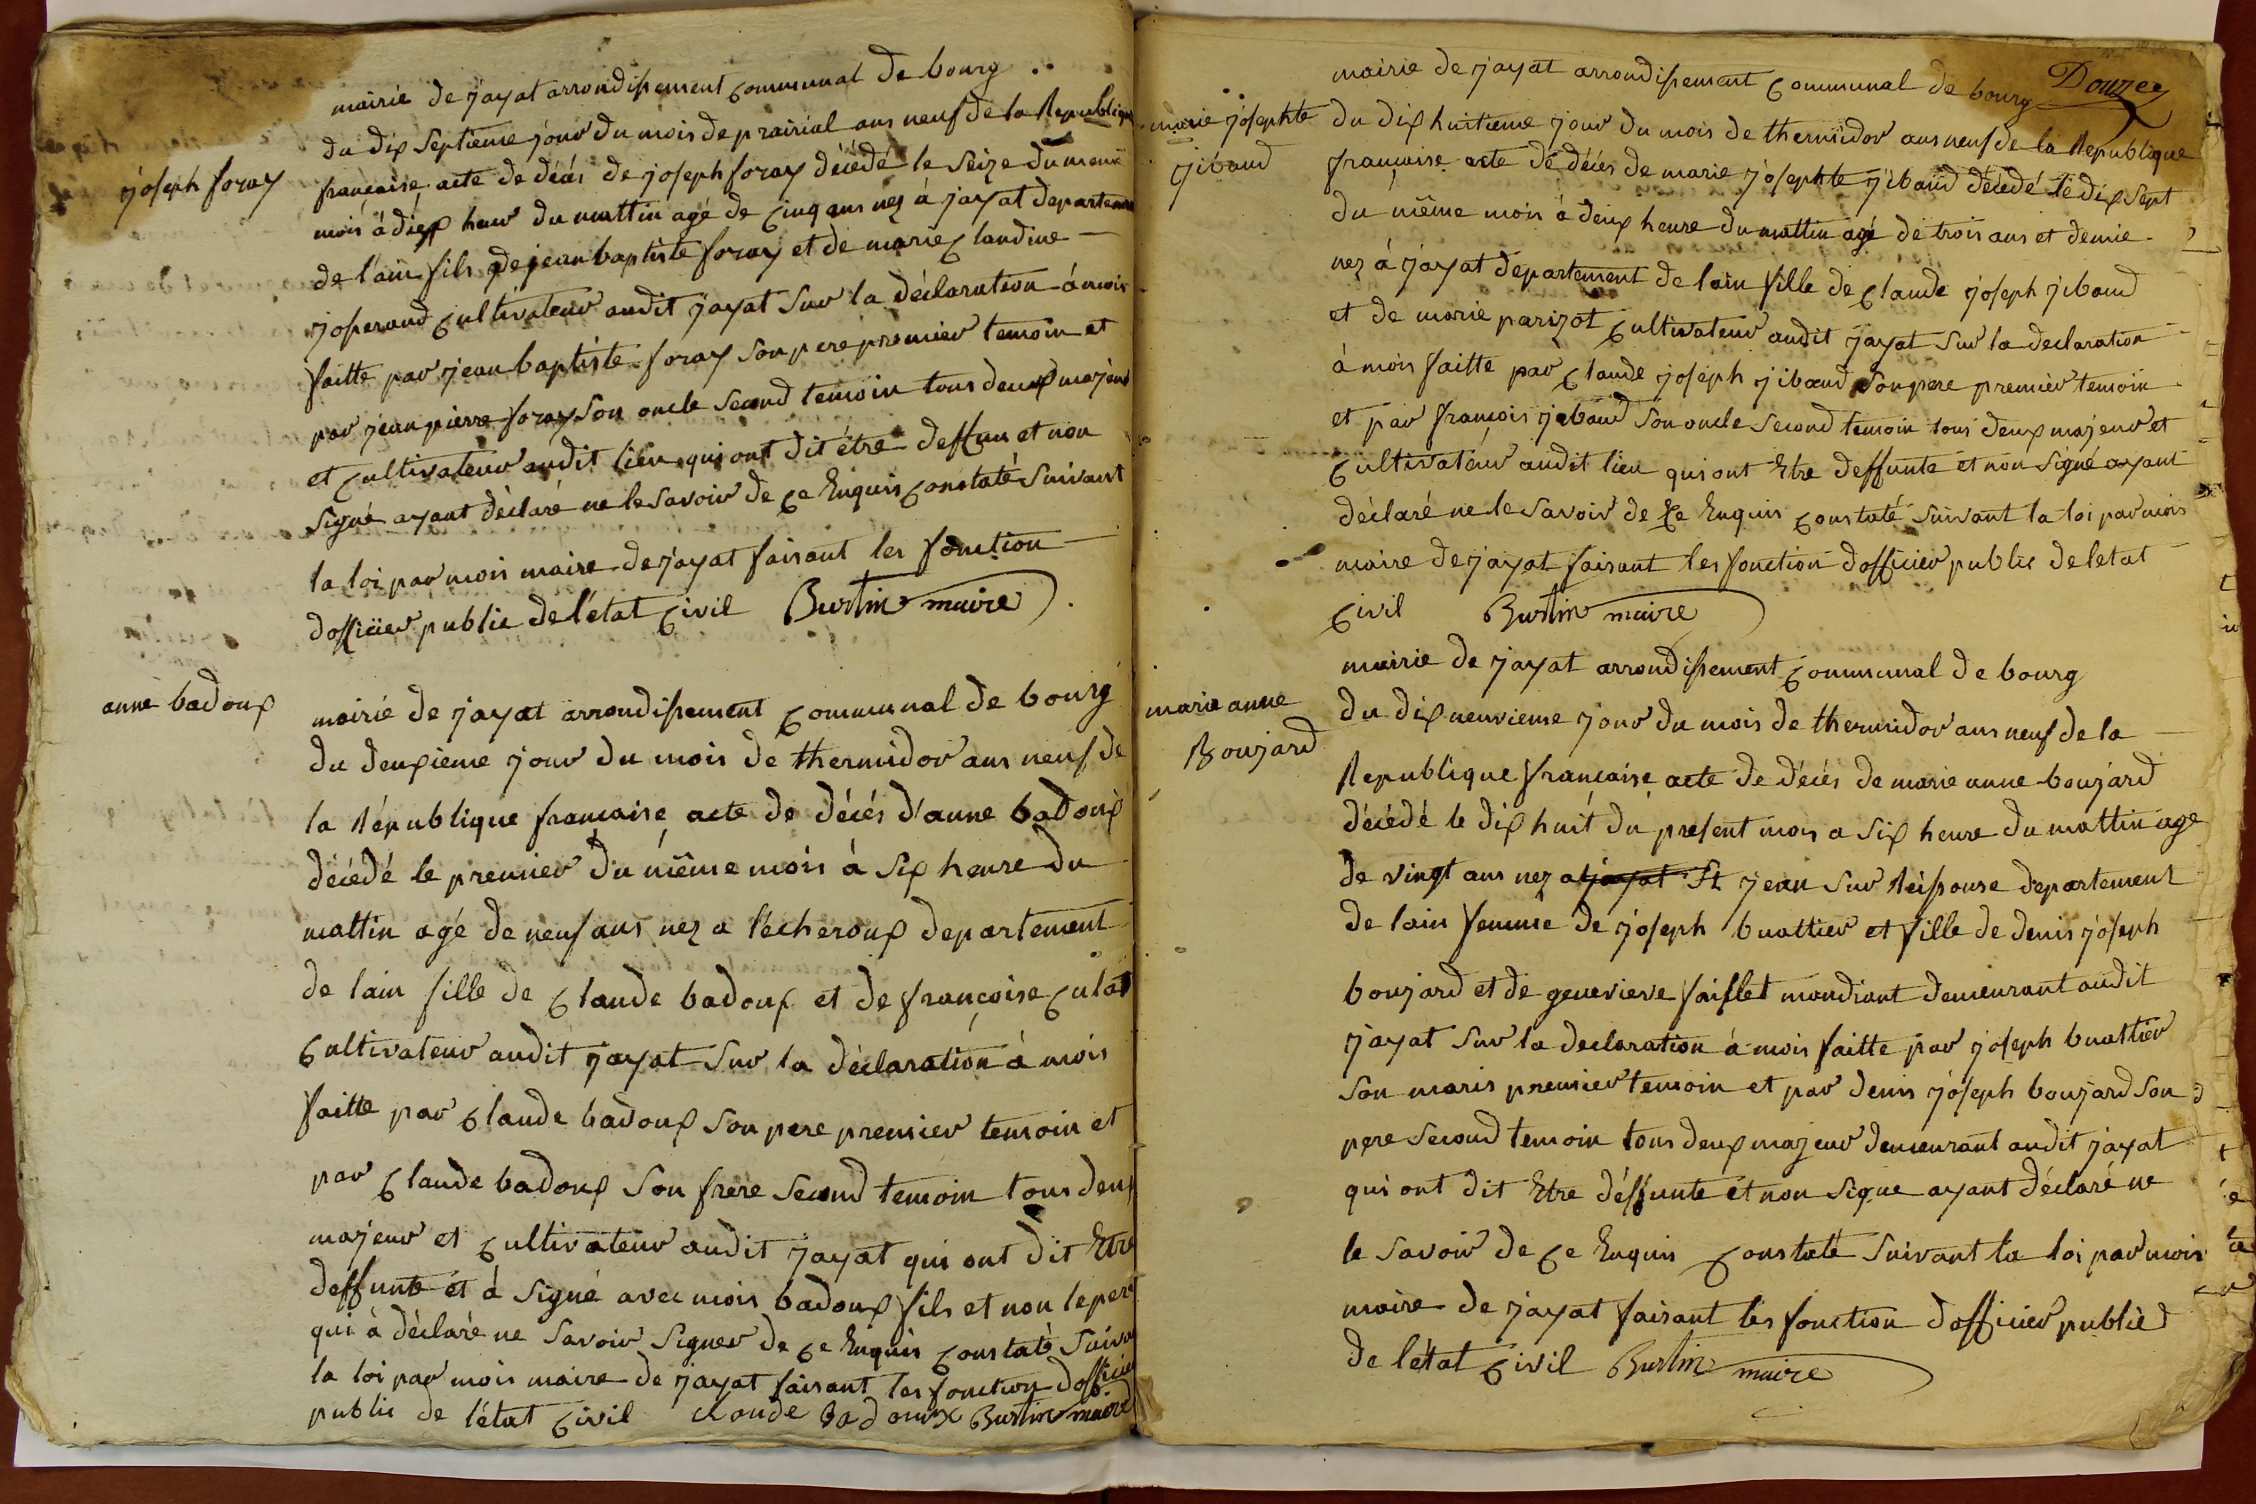 mairie de jayat arrondissement communal de bourg
joseph foray
du dix septieme jour du mois de prairial ans neuf de la Republique
françaisse acte de décés de joseph foray décédé le seize du meme
mois à dix heur du mattin agé de cinq ans nez à jayat departement
de l'ain fils de jean baptiste foray et de marie claudine
josserand cultivateur audit jayat sur la déclaration à mois
faitte par jean baptiste foray son pere premier temoin et
par jean pierre foray son oncle second temoin tous deux majeur
et cultivateur audit lieu qui ont dit étre deffun et non
signé ayant déclaré ne le savoir de ce Enquis constaté suivant
la loi par mois maire de jayat faisant les fonction
dofficier public de l'état civil Burtin maire
anne badoux
mairie de jayat arrondissement communal de bourg
du deuxieme jour du mois de thermidor ans neuf de
la République française acte de décés d'anne badoux
décédé le premier du même mois à six heure du
mattin agé de neuf ans nez a lécheroux departement
de lain fille de claude badoux et de françoise culat
cultivateur audit jayat sur la déclaration à mois
faitte par claude badoux son pere premier temoin et
par claude badoux son frere second temoin tous deux
majeur et cultivateur audit jayat qui ont dit Etre
deffunte et à signé avec mois badoux fils et non le pere
qui à déclaré ne savoir signer de ce Enquis constaté suiva
la loi par mois maire de jayat faisant les fonction dofficier
public de l'état civil claude badoux Burtin maire
Douzee
mairie de jayat arrondissement communal de bourg
marie josephte
jibaud
du dix huitieme jour du mois de thermidor ans neuf de la Republique
françaisse acte de décés de marie josephte jibaud décédé le dix sept
du même mois à deux heure du mattin agé de trois ans et demie
nez à jayat departement de lain fille de claude joseph jibaud
et de marie parizot cultivateur audit jayat sur la declaration
à mois faitte par claude joseph jibaud son pere premier temoin
et par françois jibaud son oncle second temoin tous deux majeur et
cultivateur audit lieu qui ont Etre deffunte et non signé ayant
déclaré ne le savoir de ce Enquis constaté suivant la loi par mois
maire de jayat faisant les fonction dofficier public de letat
civil Burtin maire
mairie de jayat arrondissement communal de bourg
marie anne
Boujard
du dix neuvieme jour du mois de thermidor ans neuf de la
Republique française acte de décés de marie anne boujard
décédé le dix huit du present mois a six heure du mattin age
de vingt ans nez a jayat St jean sur Reissouse departement
de lain femme de joseph buattier et fille de denis joseph
boujard et de genevieve faiflet mandiant demeurant audit
jayat sur la declaration à mois faitte par joseph buattier
son maris premier temoin et par denis joseph boujard son
pere second temoin tous deux majeur demeurant audit jayat
qui ont dit Etre déffunte et non signe ayant déclaré ne
le savoir de ce Enquis constaté suivant la loi par mois
maire de jayat faisant les fonction dofficier public
de létat civil Burtin maire